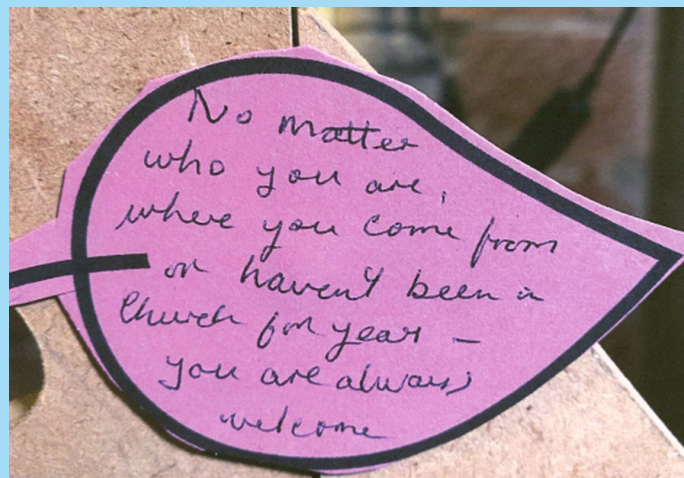 No matter
who you are,
where you come from
or haven't been in
Church for year –
you are always
welcome